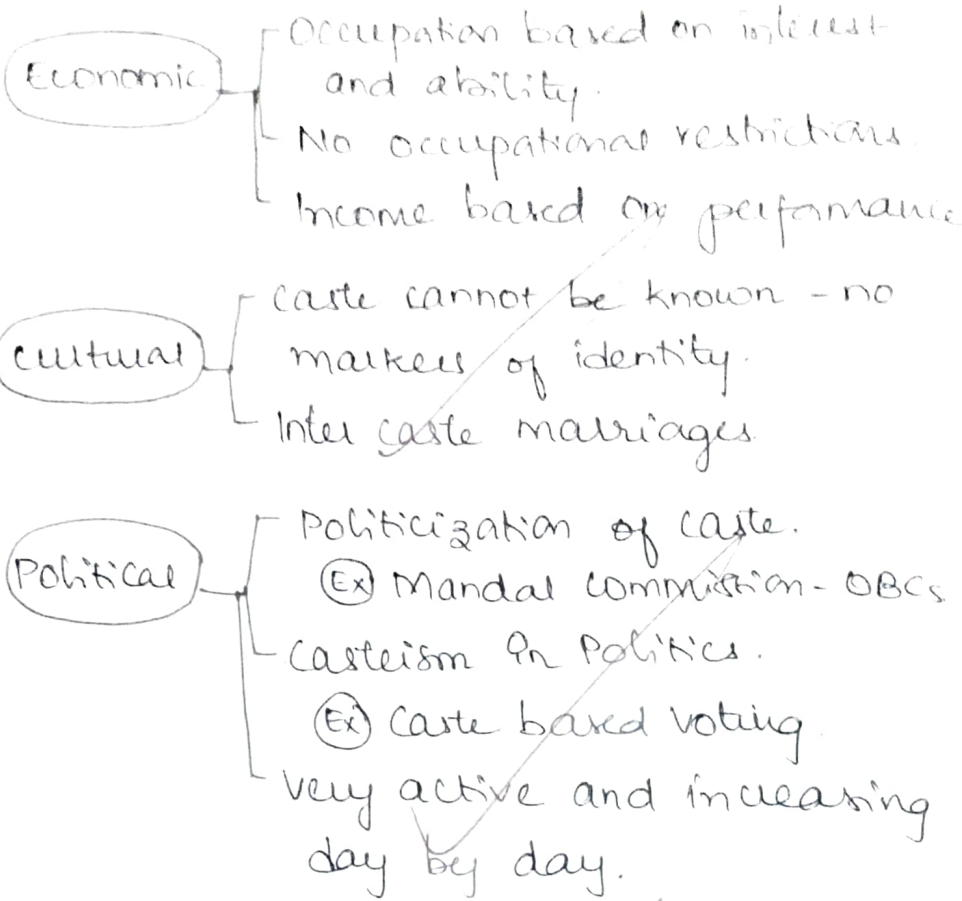 Economic
Occupation based on interest
and ability.
No occupational restrictions.
Income based on performance
Cultural
Caste cannot be known - no
markers of identity.
Inter caste marriages
Political
Politicization of caste.
Ex Mandal Commission - OBCs
Casteism in Politics.
Ex Caste based voting
Very active and increasing
day by day.